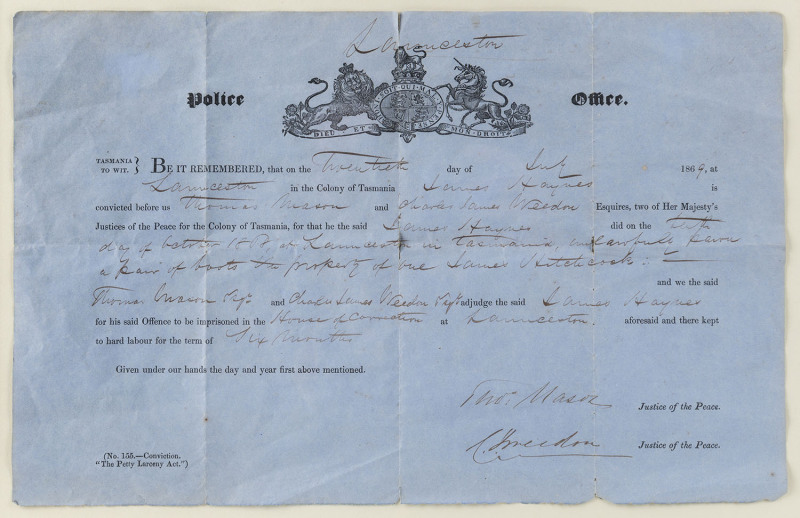 Launceston
Police Office.
HONI SOIT QUI MAL Y PENSE
DIEU ET MON DROIT
TASMANIA TO WIT. } BE IT REMEMBERED, that on the Twentieth day of July 1869, at
Launceston in the Colony of Tasmania James Haynes is
convicted before us Thomas Mason and Charles James Weedon Esquires, two of Her Majesty's
Justices of the Peace for the Colony of Tasmania, for that he the said James Haynes did on the
day of October at Launceston in Tasmania, unlawfully
a pair of boots the property of one James Hitchcock:
and we the said
Thomas Mason Esqr and Charles James Weedon Esqr adjudge the said James Haynes
for his said Offence to be imprisoned in the House of Correction at Launceston aforesaid and there kept
to hard labour for the term of Six Months
Given under our hands the day and year first above mentioned.
Thos. Mason Justice of the Peace.
C J Weedon Justice of the Peace.
(No. 155.—Conviction.
"The Petty Larceny Act.")